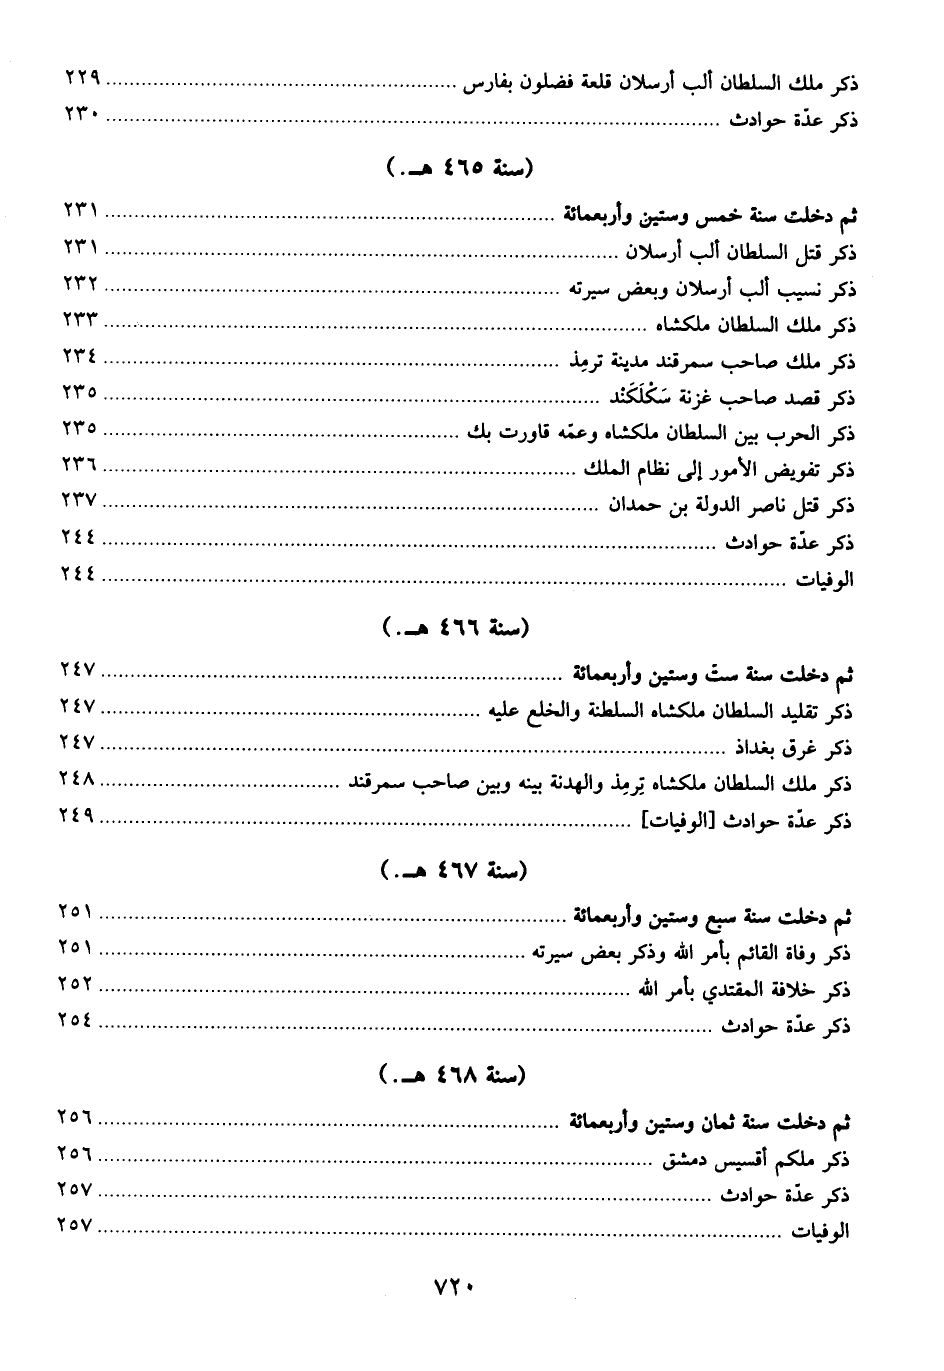 ذكر ملك السلطان ألب أرسلان قلعة فضلون بفارس ........ ٢٢٩
ذكر عدّة حوادث ........ ٢٣٠
(سنة ٤٦٥ هـ.)
ثم دخلت سنة خمس وستين وأربعمائة ........ ٢٣١
ذكر قتل السلطان ألب أرسلان ........ ٢٣١
ذكر نسيب ألب أرسلان وبعض سيرته ........ ٢٣٢
ذكر ملك السلطان ملكشاه ........ ٢٣٣
ذكر ملك صاحب سمرقند مدينة ترمِذ ........ ٢٣٤
ذكر قصد صاحب غزنة سَكْلَكَنْد ........ ٢٣٥
ذكر الحرب بين السلطان ملكشاه وعمّه قاورت بك ........ ٢٣٥
ذكر تفويض الأمور إلى نظام الملك ........ ٢٣٦
ذكر قتل ناصر الدولة بن حمدان ........ ٢٣٧
ذكر عدّة حوادث ........ ٢٤٤
الوفيات ........ ٢٤٤
(سنة ٤٦٦ هـ.)
ثم دخلت سنة ستّ وستين وأربعمائة ........ ٢٤٧
ذكر تقليد السلطان ملكشاه السلطنة والخلع عليه ........ ٢٤٧
ذكر غرق بغداذ ........ ٢٤٧
ذكر ملك السلطان ملكشاه تِرمِذ والهدنة بينه وبين صاحب سمرقند ........ ٢٤٨
ذكر عدّة حوادث [الوفيات] ........ ٢٤٩
(سنة ٤٦٧ هـ.)
ثم دخلت سنة سبع وستين وأربعمائة ........ ٢٥١
ذكر وفاة القائم بأمر الله وذكر بعض سيرته ........ ٢٥١
ذكر خلافة المقتدي بأمر الله ........ ٢٥٢
ذكر عدّة حوادث ........ ٢٥٤
(سنة ٤٦٨ هـ.)
ثم دخلت سنة ثمان وستين وأربعمائة ........ ٢٥٦
ذكر ملكم أقسيس دمشق ........ ٢٥٦
ذكر عدّة حوادث ........ ٢٥٧
الوفيات ........ ٢٥٧
٧٢٠